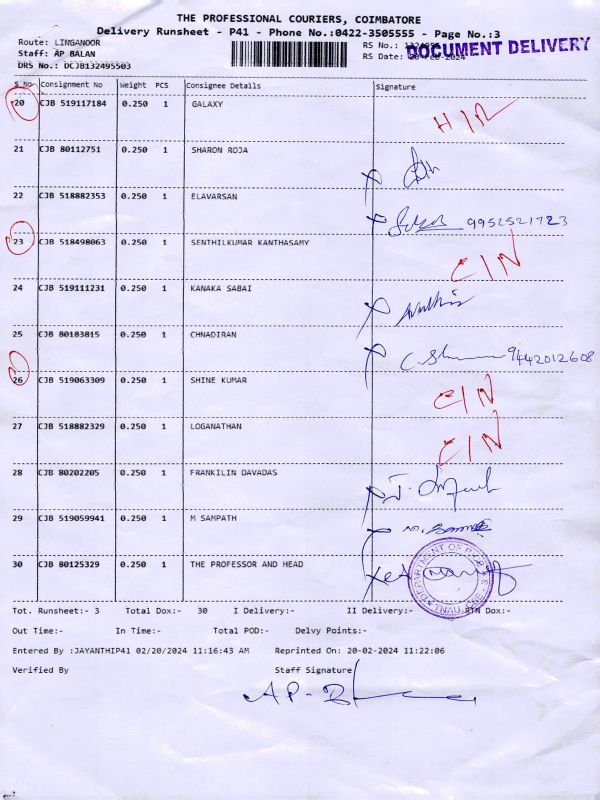 THE PROFESSIONAL COURIERS, COIMBATORE
Delivery Runsheet - P41 - Phone No.:0422-3505555 - Page No.:3
Route: LINGANOOR
RS No.:
Staff: AP BALAN
RS Date: 20-Feb-2024
DOCUMENT DELIVERY
DRS No.: DCJB132495503
S No Consignment No Weight PCS Consignee Details Signature
20 CJB 519117184 0.250 1 GALAXY
21 CJB 80112751 0.250 1 SHARON ROJA
22 CJB 518882353 0.250 1 ELAVARSAN
9952521723
23 CJB 518498063 0.250 1 SENTHILKUMAR KANTHASAMY CIN
24 CJB 519111231 0.250 1 KANAKA SABAI
25 CJB 80183815 0.250 1 CHNADIRAN
9442012608
26 CJB 519063309 0.250 1 SHINE KUMAR CIN
27 CJB 518882329 0.250 1 LOGANATHAN CIN
28 CJB 80202205 0.250 1 FRANKILIN DAVADAS
29 CJB 519059941 0.250 1 M SAMPATH
30 CJB 80125329 0.250 1 THE PROFESSOR AND HEAD
DEPARTMENT OF
TNAU, CBE - 3
Tot. Runsheet:- 3 Total Dox:- 30 I Delivery:- II Delivery:- RTN Dox:-
Out Time:- In Time:- Total POD:- Delvy Points:-
Entered By :JAYANTHIP41 02/20/2024 11:16:43 AM Reprinted On: 20-02-2024 11:22:06
Verified By Staff Signature